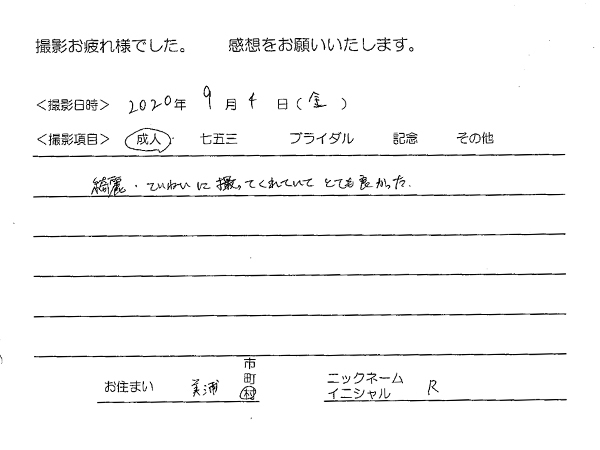 撮影お疲れ様でした。 感想をお願いいたします。
<撮影日時> 2020年 9月 4日(金)
<撮影項目> 成人 七五三 ブライダル 記念 その他
綺麗・ていねいに撮ってくれていてとても良かった.
お住まい 美浦 市町村
ニックネーム イニシャル R